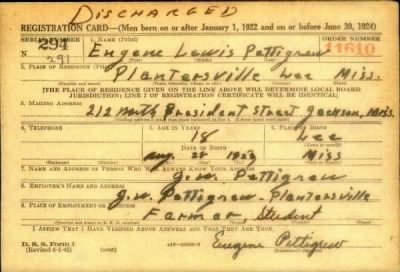 DISCHARGED
REGISTRATION CARD—(Men born on or after January 1, 1922 and on or before June 30, 1924)
SERIAL NUMBER
1. NAME (Print)
ORDER NUMBER
294
Eugene Lewis Pettigrew
11610
291
2. PLACE OF RESIDENCE (Print)
Plantersville Lee Miss.
[THE PLACE OF RESIDENCE GIVEN ON THE LINE ABOVE WILL DETERMINE LOCAL BOARD
JURISDICTION; LINE 2 OF REGISTRATION CERTIFICATE WILL BE IDENTICAL]
3. MAILING ADDRESS
212 North President Street Jackson, Miss.
[Mailing address if other than place indicated on line 2. If same insert word same]
4. TELEPHONE
5. AGE IN YEARS
6. PLACE OF BIRTH
18
Lee
DATE OF BIRTH
Aug 28
Miss
7. NAME AND ADDRESS OF PERSON WHO WILL ALWAYS KNOW YOUR ADDRESS
J. W. Pettigrew
8. EMPLOYER'S NAME AND ADDRESS
J. W. Pettigrew - Plantersville
9. PLACE OF EMPLOYMENT OR BUSINESS
Farmer, Student
I AFFIRM THAT I HAVE VERIFIED ABOVE ANSWERS AND THAT THEY ARE TRUE.
D. S. S. Form 1
(Revised 6-1-42)
(over)
Eugene Pettigrew